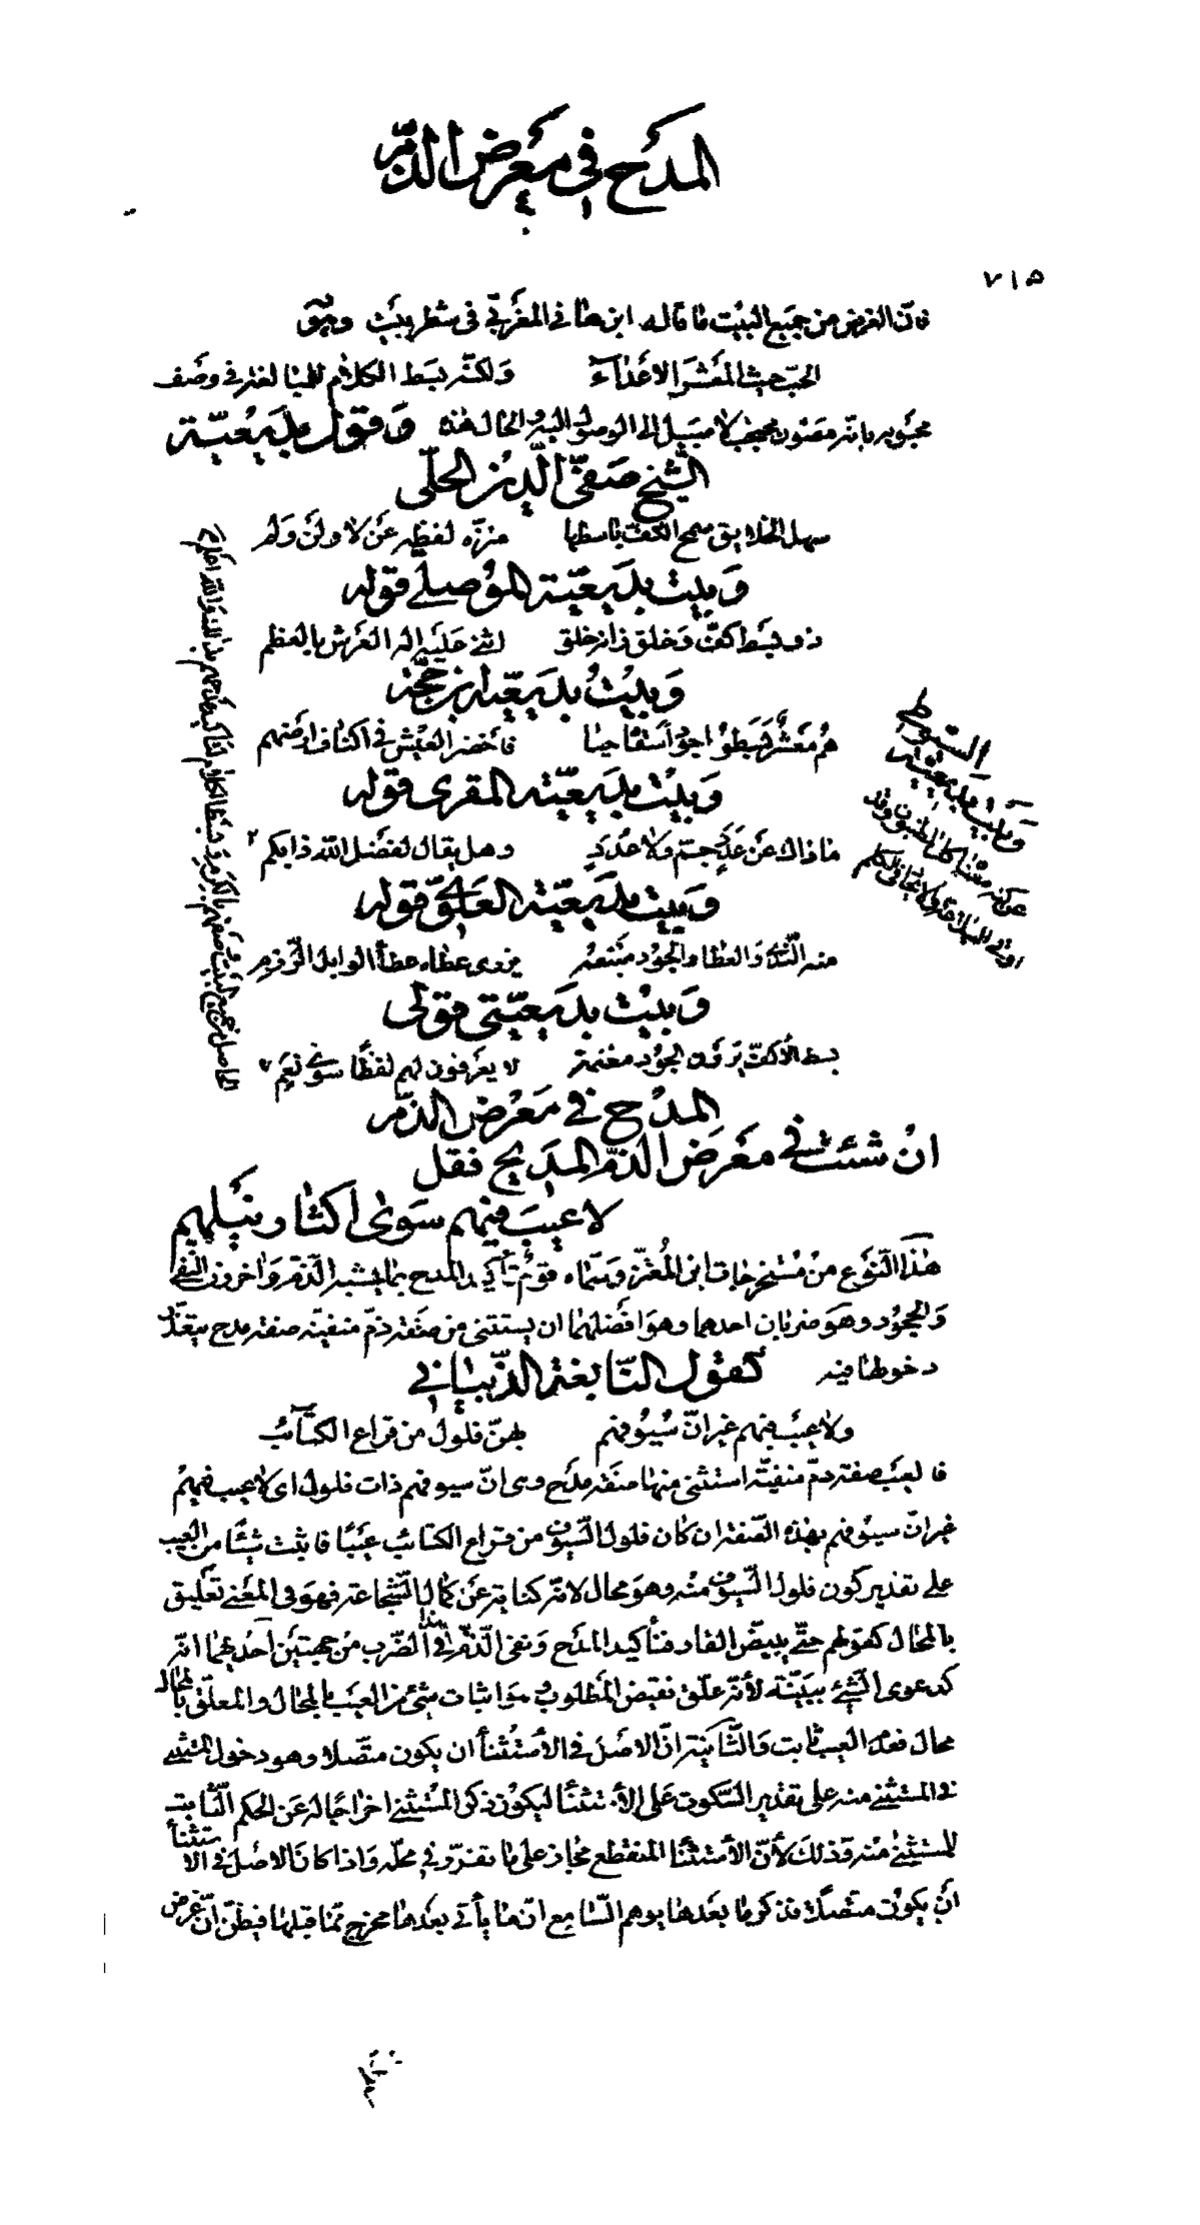 المدح في معرض الذم
٧١٥
فان الغرض من جميع البيت ما قاله ابن هاني المغربي في شطر بيت وهو
الحب حيث المعشر الاعداء ولكنه بسط الكلام للمبالغة في وصف
محبوبه بانه مصون محجب لا سبيل الى الوصول اليه والحال هذه وقول بديعية
الشيخ صفي الدين الحلي
سهل الخلايق سمح الكف باسطها منزه لفظه عن لا ولن ولم
وبيت بديعية الموصلي قوله
ذو بسط كف وخلق زانه خلق اثنى عليه اله العرش بالعظم
وبيت بديعية ابن حجة
هم معشر بسطوا جودا سقاه حيا فاخضر العيش في اكناف ارضهم
وبيت بديعية المقري قوله
ماذاك عن عدد جسم ولا عدد وهل يقال لفضل الله ذا بكم
وبيت بديعية العلوي قوله
منه الندى والعطا والجود مبتعث يزوي عطاه عطا الوابل الرذم
وبيت بديعيتي قولي
بسط الاكف يرون الجود مغنمة لا يعرفون لهم لفظا سوى نعم
المدح في معرض الذم
ان شئت في معرض الذم المديح فقل
لا عيب فيهم سوى اكثار نيلهم
هذا النوع من مستخرجات ابن المعتز وسماه قوم تأكيد المدح بما يشبه الذم واخرون النفي
والجحود وهو ضربان احدهما وهو افضلهما ان يستثنى من صفة ذم منفية صفة مدح بتقدير
دخولها فيه كقول النابغة الذبياني
ولا عيب فيهم غير ان سيوفهم بهن فلول من قراع الكتائب
فالعيب صفة ذم منفية استثنى منها صفة مدح وهي ان سيوفهم ذات فلول اي لا عيب فيهم
غير ان سيوفهم بهذه الصفة ان كان فلول السيوف من قراع الكتائب عيبا فاثبت شيئا من العيب
على تقدير كون فلول السيوف منه وهو محال لانه كناية عن كمال الشجاعة فهو في المعنى تعليق
بالمحال كقولهم حتى يبيض القار فتأكيد المدح ونفي الذم في هذا الضرب من جهتين احديهما انه
كدعوى الشيء ببينة لانه علق نقيض المطلوب وهو اثبات شيء من العيب بالمحال والمعلق بالمحال
محال فعدم العيب ثابت والثانية ان الاصل في الاستثنأ ان يكون متصلا وهو دخول المستثنى
في المستثنى منه على تقدير السكوت على الاستثنا ليكون ذكر المستثنى اخراجا له عن الحكم الثابت
للمستثنى منه وذلك لأن الاستثنا المنقطع مجاز على ما تقرر في محله واذا كان الاصل في الاستثنأ
ان يكون متصلا فذكر ما بعدها يوهم السامع ان ما يأتي بعدها مخرج مما قبلها فيظن ان غرض
وبيت بديعية
السيوطي